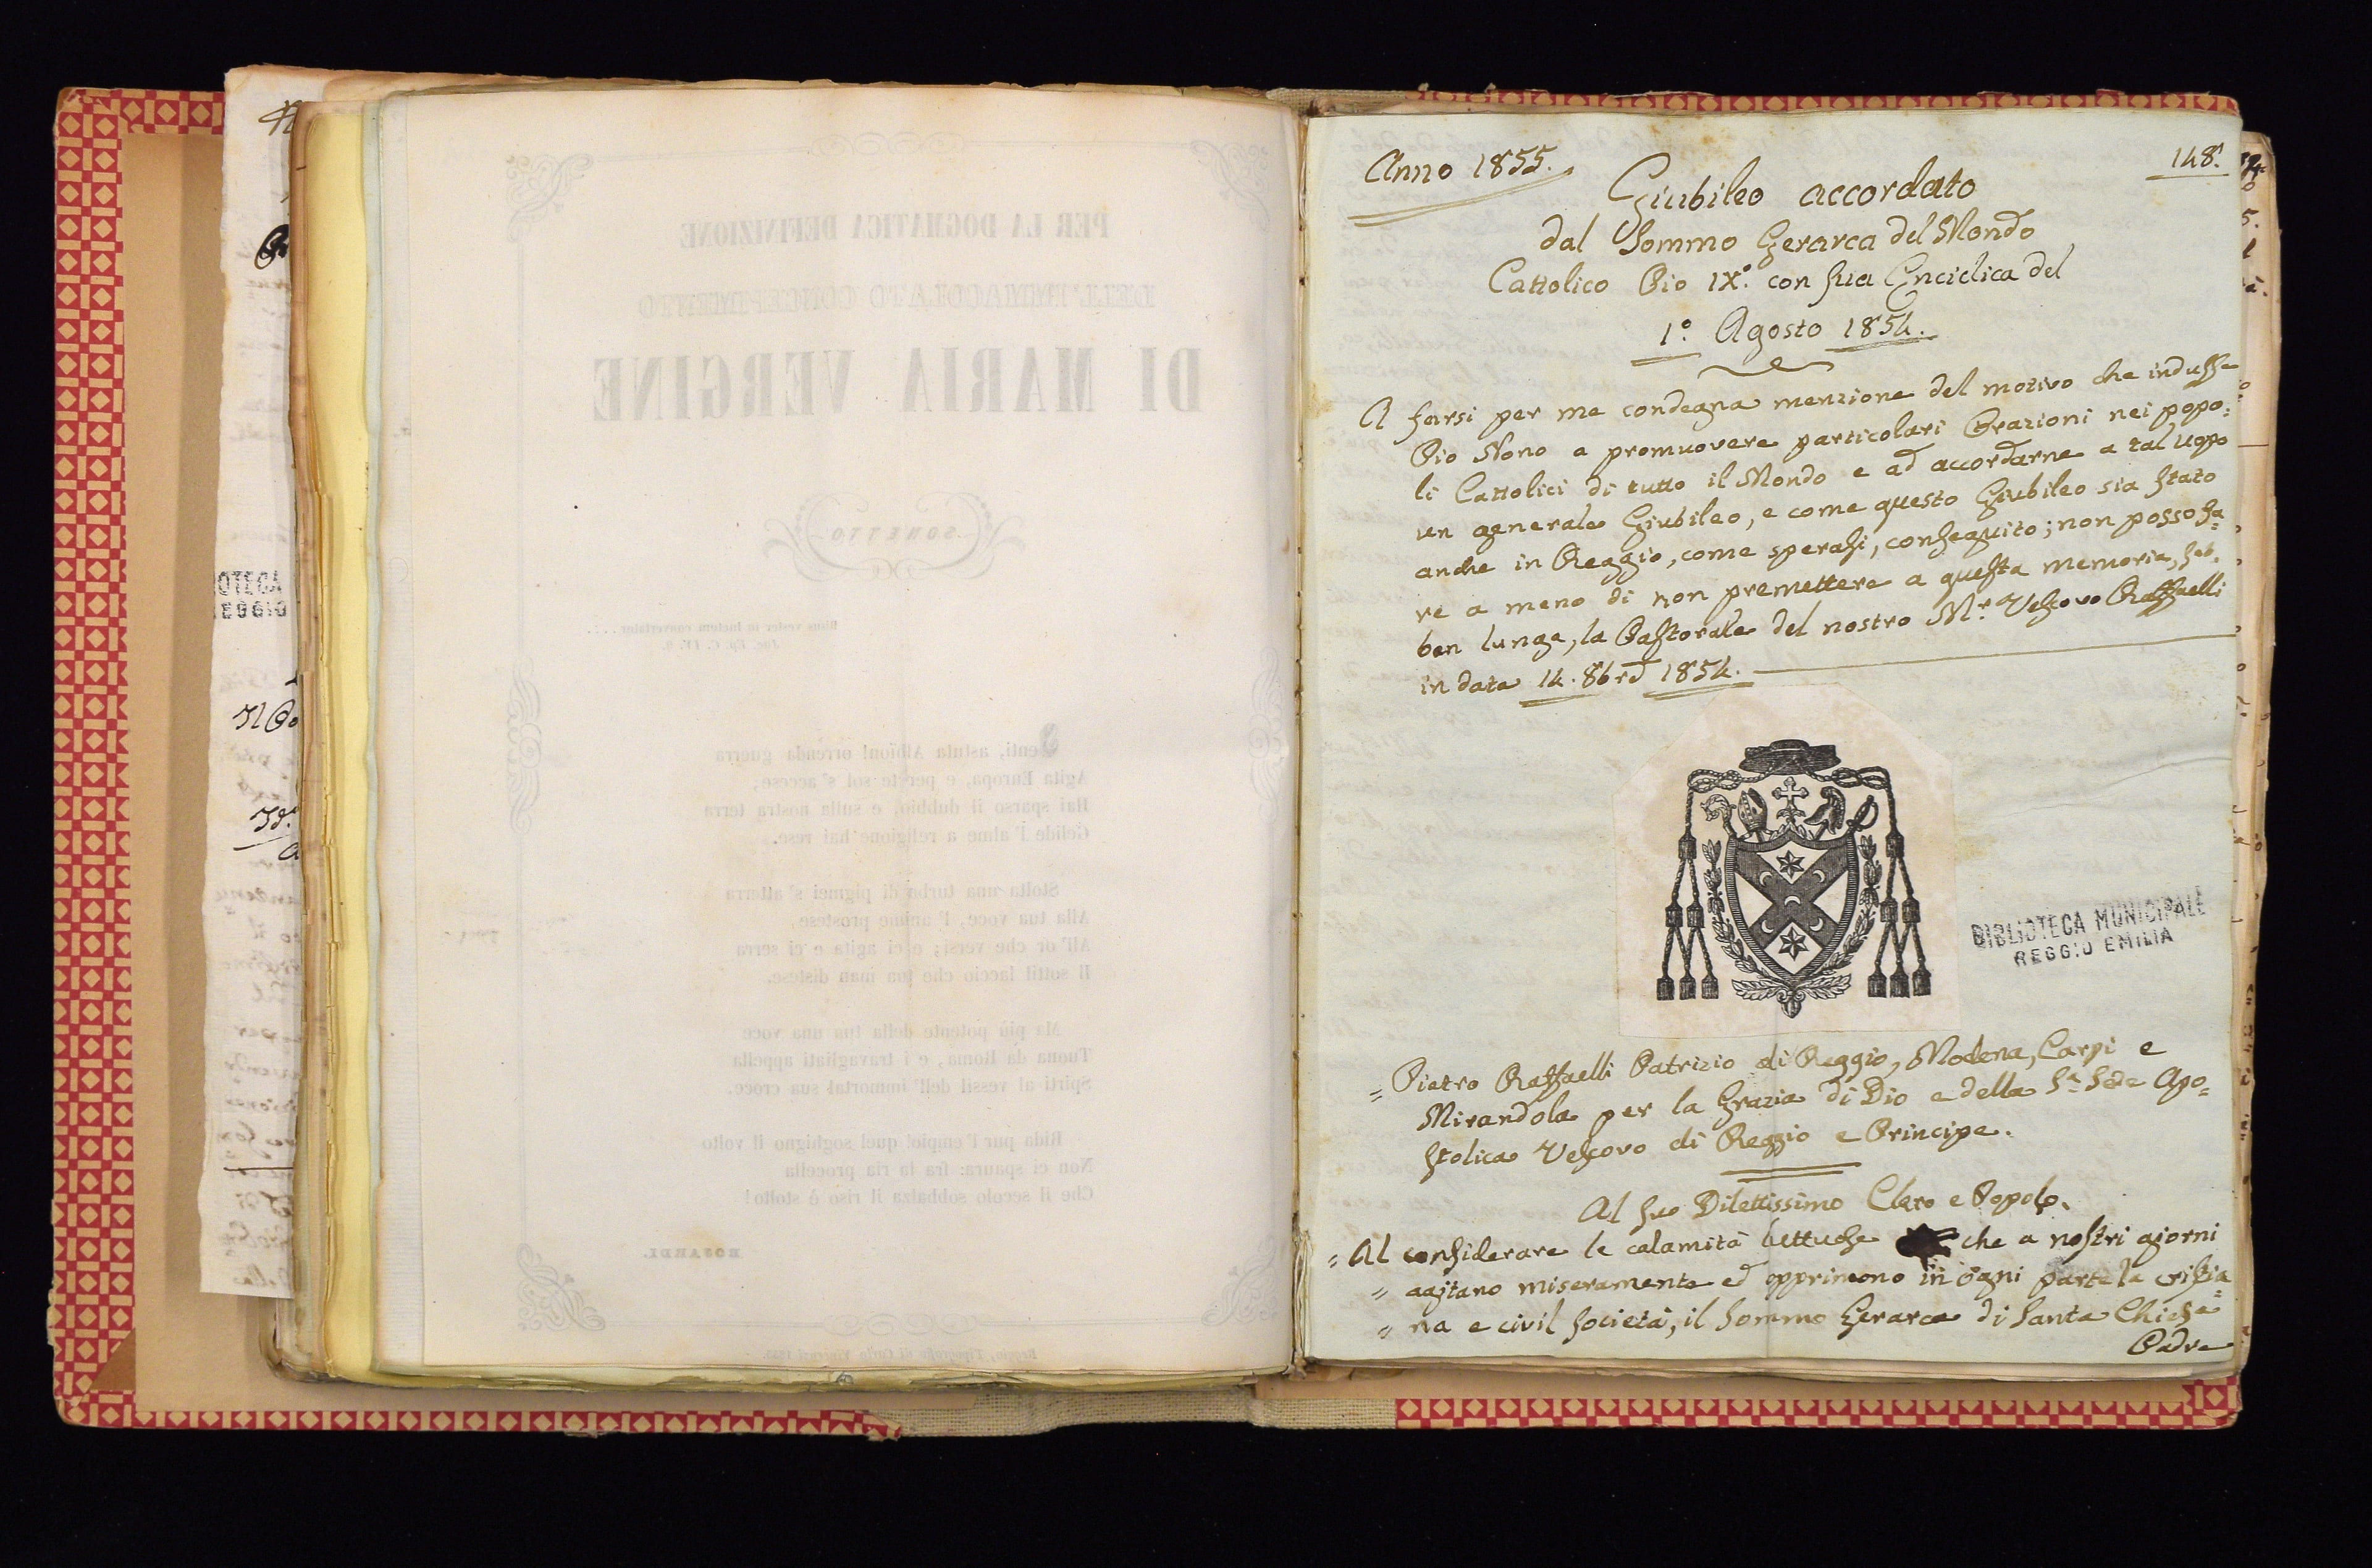 PER LA DOGMATICA DEFINIZIONE
DELL'IMMACOLATO CONCEPIMENTO
DI MARIA VERGINE
SONETTO
Risus vester in luctum convertatur
Jac. Ep. C. IV. 9.
Senti, astuta Albion! orrenda guerra
Agita Europa, e per te sol s'accese;
Hai sparso il dubbio, e sulla nostra terra
Gelide l'alme a religione hai rese.
Stolta una turba di pigmei s'atterra
Alla tua voce, l'anime prostese
All'or che versi; e ci agita e ci serra
Il sottil laccio che tua man distese.
Ma più potente della tua una voce
Tuona da Roma, e i travagliati appella
Spirti al vessil dell'immortal sua croce.
Rida pur l'empio! quel soghigno il volto
Non ci spaura: fra la ria procella
Che il secolo sobbalza il riso è stolto!
ROSARDI.
Reggio, Tipografia di Carlo Vincenzi 1855.
OTECA
EGGIO
Anno 1855.
148.
Giubileo accordato
dal Sommo Gerarca del Mondo
Cattolico Pio IX.º con sua Enciclica del
1.º Agosto 1854.
A farsi per me condegna menzione del motivo che indusse
Pio Nono a promuovere particolari Orazioni nei popo=
li Cattolici di tutto il Mondo e ad accordarne a tal uopo
un generale Giubileo, e come questo Giubileo sia stato
anche in Reggio, come sperasi, conseguito; non posso fa=
re a meno di non premettere a questa memoria, seb=
ben lunga, la Pastorale del nostro M.r Vescovo Raffaelli
in data 14. 8bre 1854.
BIBLIOTECA MUNICIPALE
REGGIO EMILIA
= Pietro Raffaelli Patrizio di Reggio, Modena, Carpi e
Mirandola per la Grazia di Dio e della S.a Sede Apo=
stolica Vescovo di Reggio e Principe.
Al suo Dilettissimo Clero e Popolo.
" Al considerare le calamità luttuose che a nostri giorni
" agitano miseramente ed opprimono in ogni parte la cristia=
" na e civil società, il Sommo Gerarca di Santa Chiesa
Padre